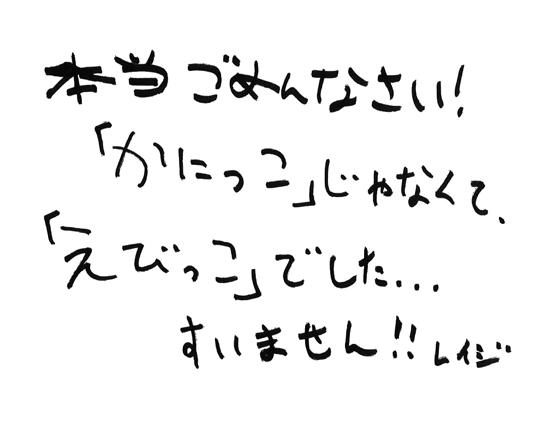 本当ごめんなさい!
「かにっこ」じゃなくて、
「えびっこ」でした...
すいません!! レイジ